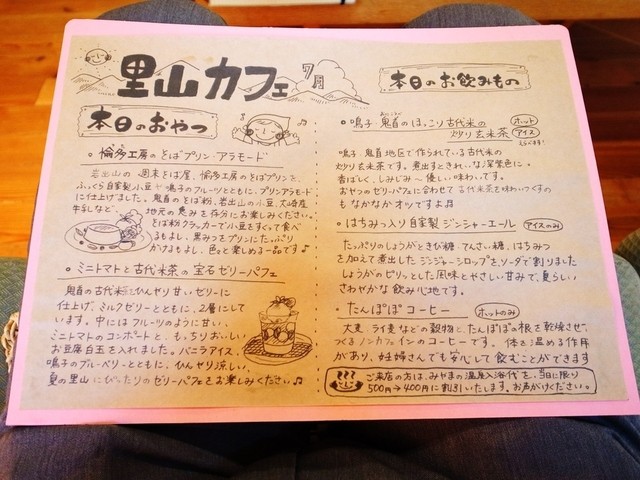 里山カフェ 7月
本日のおやつ
愉多工房のそばプリン・アラモード
岩出山の週末そば屋、愉多工房のそばプリンを、
ふっくら自家製小豆や鳴子のフルーツとともに、プリンアラモード
に仕上げました。鬼首のそば粉、岩出山の小豆、大崎産
牛乳など、地元の恵みを存分にお楽しみください。
そば粉クラッカーで小豆をすくって食べ
るもよし、黒みつをプリンにたっぷり
かけるもよし、色々と楽しめる一品です♪
ミニトマトと古代米茶の宝石ゼリーパフェ
鬼首の古代米をひんやり甘いゼリーに
仕上げ、ミルクゼリーとともに、2層にして
います。中にはフルーツのように甘い、
ミニトマトのコンポートと、もっちりおいしい
お豆腐白玉を入れました。バニラアイス、
鳴子のブルーベリーとともに、ひんやり涼しい、
夏の里山にぴったりのゼリーパフェをお楽しみください♫
本日のお飲みもの
鳴子・鬼首のほっこり古代米の
炒り玄米茶
ホット
アイス
えらべます!
鳴子・鬼首地区で作られている古代米の
炒り玄米茶です。煮出すときれいな深紫色に。
香ばしく、しみじみ〜優しい味わいです。
おやつのゼリーパフェに合わせて古代米茶を味わいつくすの
もなかなかオツですよ♫
はちみつ入り自家製ジンジャーエール アイスのみ
たっぷりのしょうがときび糖、てんさい糖、はちみつ
を加えて煮出したジンジャーシロップをソーダで割りました
しょうがのピリッとした風味とやさしい甘みで、夏らしい
さわやかな飲み心地です。
たんぽぽコーヒー ホットのみ
大麦、ライ麦などの穀物と、たんぽぽの根を乾燥させて
つくるノンカフェインのコーヒーです。体を温める作用
があり、妊婦さんでも安心して飲むことができます
ご来店の方は、みやまの温泉入浴代を、当日に限り
500円→400円に割引いたします。お声がけください。